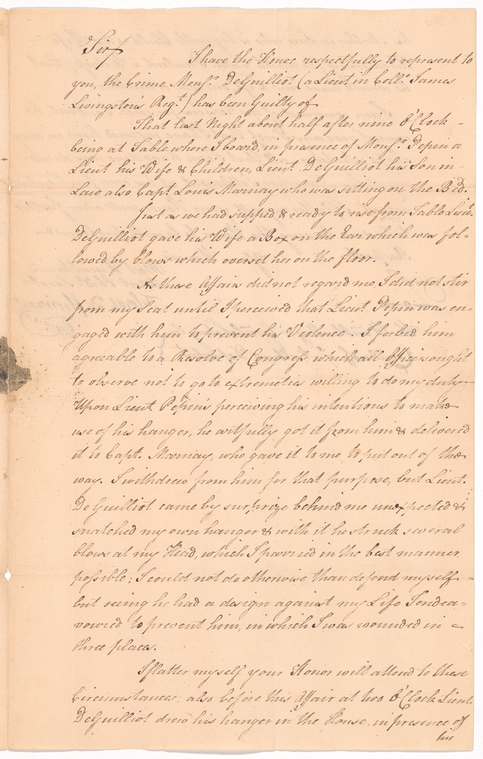 Sir,
I have the Honor respectfully to represent to
you, the Crime Monsr. DeGuilliot (a Lieut in Coll: James
Livingstons Regt.) has been Guilty of
That last Night about half after nine O'Clock -
being at Table where I board, in presence of Monsr. Pepin a
Lieut his Wife & Children, Lieut. DeGuilliot his Son in
Law also Capt. Louis Marnay who was sitting on the Bed.
Just as we had supped & ready to rise from Table Lieut.
DeGuilliot gave his Wife a Box on the Ear which was fol-
lowed by blows which overset her on the floor.
As these Affairs did not regard me, I did not stir
from my Seat until I perceived that Lieut. Pepin was en-
gaged with him to prevent his Violence. I forbid him
agreeable to a Resolve of Congress which all Officers ought
to observe not to go to extremeties willing to do my duty -
Upon Lieut. Pepin's perceiving his intentions to make
use of his hanger, he artfully got it from him & delivered
it to Capt. Marnay, who gave it to me to put out of the
way. I withdrew from him for that purpose, but Lieut.
DeGuilliot came by surprize behind me unexpected &
snatched my own hanger & with it he struck several
blows at my Head, which I parried in the best manner
possible; I could not do otherwise, than defend myself -
but seeing he had a design against my Life I endea-
voured to prevent him, in which I was wounded in
three places.
I flatter myself your Honor will attend to these
Circumstances; also before this Affair at two O'Clock Lieut.
DeGuilliot drew his hanger in the House, in presence of
his